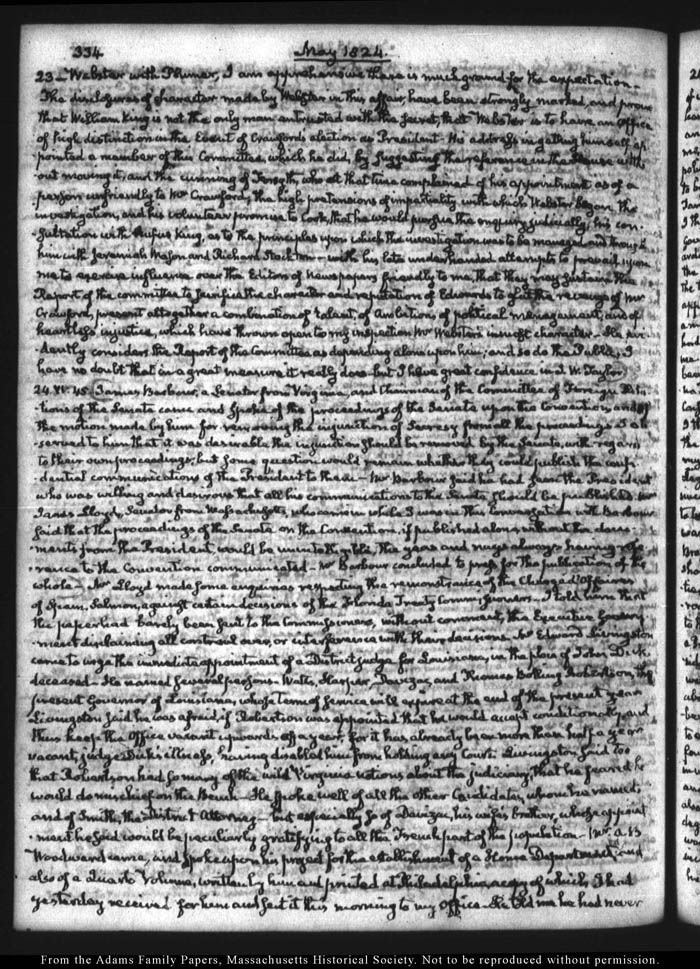 334 May 1824.
23 – Webster with Plumer, I am apprehensive there is much ground for the expectation –
The disclosures of character made by Webster in this affair, have been strongly marked, and prove
that William King is not the only man entrusted with the secret, that Webster is to have an Office
of high distinction in the Event of Crawford's election as President – His address in getting himself ap
pointed a member of this Committee, which he did, by suggesting the reference in the House with
out moving it, and the cunning of Forsyth, who at that time complained of his appointment as of a
person unfriendly to Mr Crawford, the high pretensions of impartiality with which Webster began the
investigation, and his volunteer promise to Cook, that he would pursue the enquiry judicially, his con-
sultation with Rufus King, as to the principles upon which the investigation was to be managed and through
him with Jeremiah Mason and Richard Stockton – with his late underhanded attempts to prevail upon
me to exercise influence over the Editors of Newspapers friendly to me, that they may sustain the
Report of the committee to sacrifice the character and reputation of Edwards to glut the revenge of Mr
Crawford, present altogether a combination of talent, of ambition, of political management, and of
heartless injustice, which have thrown open to my inspection Mr Webster's inmost character – He evi
dently considers the Report of the Committee as depending alone upon him; and so do the Public, I
have no doubt that in a great measure it really does – but I have great confidence in J. W. Taylor.
24. IV. 45. James Barbour, a Senator from Virginia, and Chairman of the Committee of Foreign Rela
tions of the Senate came and spoke of the proceedings of the Senate upon the Convention, and of
the motion made by him for removing the injunction of Secrecy from all the proceedings I ob
served to him that it was desirable the injunction should be removed by the Senate, with regard
to their own proceedings, but some question would remain whether they could publish the confi
dential communications of the President to them – Mr Barbour said he had seen the President
who was willing and desirous that all his communications to the Senate should be published. Mr
James Lloyd, Senator from Massachusetts, who came in while I was in this Conversation with Barbour
said that the proceedings of the Senate on the Convention, if published alone without the docu-
ments from the President, would be unintelligible, the yeas and nays always having refe
rence to the Convention communicated – Mr Barbour concluded to press for the publication of the
whole – Mr Lloyd made some enquiries respecting the remonstrances of the Chargé d'Affaires
of Spain, Salmon, against certain decisions of the Florida Treaty Commissioners. I told him that
the paper had barely been sent to the Commissioners, without comment, the Executive Govern
ment disclaiming all controul over, or interference with their decisions. Mr Edward Livingston
came to urge the immediate appointment of a District judge for Louisiana, in the place of John Dick
deceased – He named several persons – Watts, Harper, Davezac, and Thomas Bolling Robertson, the
present Governor of Louisiana, whose term of service will expire at the end of the present year
Livingston said he was afraid, if Robertson was appointed that he would accept conditionally, and
thus keep the Office vacant upwards of a year, for it has already been more than half a year
vacant, judge Dick's illness, having disabled him from holding any Court. Livingston said too
that Robertson had so many of the wild Virginia notions about the judiciary, that he feared he
would do mischief on the Bench – He spoke well of all the other Candidates, whom he named,
and of Smith, the District Attorney – but especially so of Davezac, his wife's brother, whose appoint
ment he said would be peculiarly gratifying to all the French part of the population – Mr. A. B.
Woodward came, and spoke upon his project for the establishment of a Home Department, and
also of a Quarto Volume, written by him and printed at Philadelphia, a copy of which I had
yesterday received for him and sent it this morning to my Office – He told me he had never
From the Adams Family Papers, Massachusetts Historical Society. Not to be reproduced without permission.